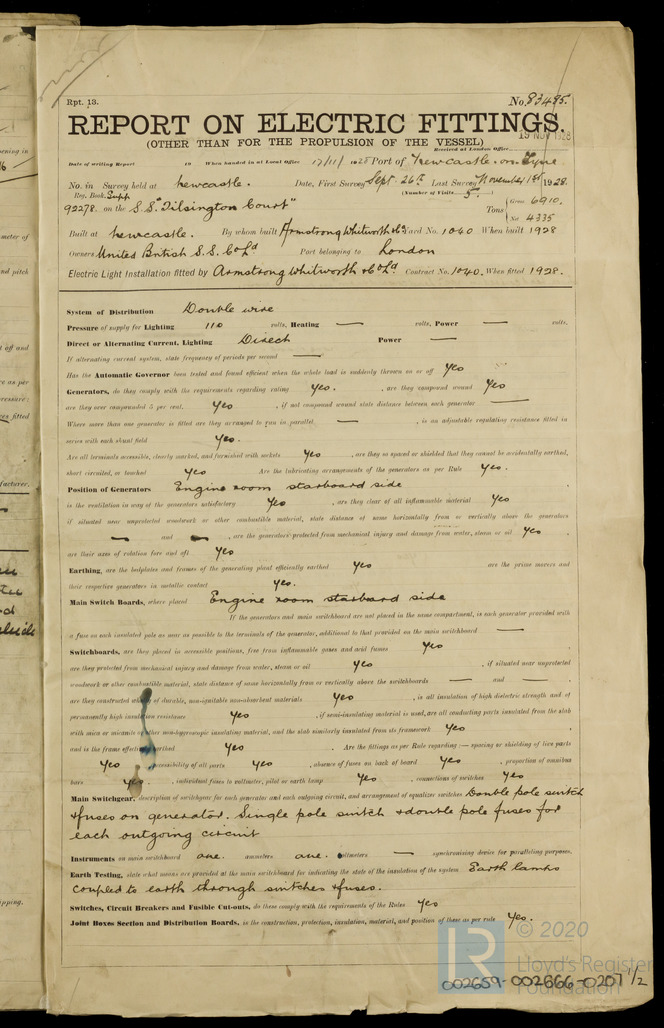 Rpt. 13.
No. 83485.
REPORT ON ELECTRIC FITTINGS.
19 NOV 1928
(OTHER THAN FOR THE PROPULSION OF THE VESSEL)
Received at London Office
Date of writing Report 19 When handed in at Local Office 17/11/1928 Port of Newcastle-on-Tyne
No. in Survey held at Newcastle. Date, First Survey Sept. 26th Last Survey November 1st 1928.
Reg. Book. Supp (Number of Visits 5.)
92278. on the S.S. "Tilsington Court" Tons { Gross 6910. Net 4335
Built at Newcastle. By whom built Armstrong Whitworth & Co Yard No. 1040 When built 1928
Owners United British S.S. Co Ld Port belonging to London
Electric Light Installation fitted by Armstrong Whitworth & Co Ld. Contract No. 1040. When fitted 1928.
System of Distribution Double wire
Pressure of supply for Lighting 110 volts, Heating — volts, Power — volts.
Direct or Alternating Current, Lighting Direct Power —
If alternating current system, state frequency of periods per second —
Has the Automatic Governor been tested and found efficient when the whole load is suddenly thrown on or off Yes
Generators, do they comply with the requirements regarding rating Yes. , are they compound wound Yes
are they over compounded 5 per cent. Yes , if not compound wound state distance between each generator —
Where more than one generator is fitted are they arranged to run in parallel — , is an adjustable regulating resistance fitted in
series with each shunt field Yes.
Are all terminals accessible, clearly marked, and furnished with sockets Yes , are they so spaced or shielded that they cannot be accidentally earthed,
short circuited, or touched Yes Are the lubricating arrangements of the generators as per Rule Yes.
Position of Generators Engine room starboard side
is the ventilation in way of the generators satisfactory Yes , are they clear of all inflammable material Yes
if situated near unprotected woodwork or other combustible material, state distance of same horizontally from or vertically above the generators
— and — , are the generators protected from mechanical injury and damage from water, steam or oil Yes
are their axes of rotation fore and aft Yes
Earthing, are the bedplates and frames of the generating plant efficiently earthed Yes are the prime movers and
their respective generators in metallic contact Yes.
Main Switch Boards, where placed Engine room starboard side
If the generators and main switchboard are not placed in the same compartment, is each generator provided with
a fuse on each insulated pole as near as possible to the terminals of the generator, additional to that provided on the main switchboard —
Switchboards, are they placed in accessible positions, free from inflammable gases and acid fumes Yes
are they protected from mechanical injury and damage from water, steam or oil Yes , if situated near unprotected
woodwork or other combustible material, state distance of same horizontally from or vertically above the switchboards — and —
are they constructed wholly of durable, non-ignitable non-absorbent materials Yes , is all insulation of high dielectric strength and of
permanently high insulation resistance Yes , if semi-insulating material is used, are all conducting parts insulated from the slab
with mica or micanite or other non-hygroscopic insulating material, and the slab similarly insulated from its framework Yes
and is the frame effectively earthed Yes . Are the fittings as per Rule regarding:— spacing or shielding of live parts
Yes , accessibility of all parts Yes , absence of fuses on back of board Yes , proportion of omnibus
bars Yes , individual fuses to voltmeter, pilot or earth lamp Yes , connections of switches Yes
Main Switchgear, description of switchgear for each generator and each outgoing circuit, and arrangement of equalizer switches Double pole switch
& fuses on generator. Single pole switch & double pole fuses for
each outgoing circuit
Instruments on main switchboard one. ammeters one. voltmeters — synchronising device for paralleling purposes.
Earth Testing, state what means are provided at the main switchboard for indicating the state of the insulation of the system Earth lamps
coupled to earth through switches & fuses.
Switches, Circuit Breakers and Fusible Cut-outs, do these comply with the requirements of the Rules Yes
Joint Boxes Section and Distribution Boards, is the construction, protection, insulation, material, and position of these as per rule Yes.
© 2020
Lloyd's Register
Foundation
002659-002666-0207 1/2